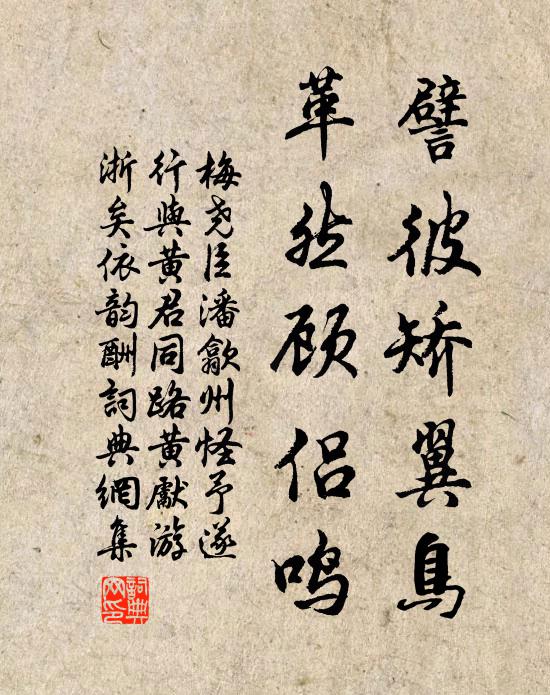 譬彼矫翼鳥
革然顾侣鸣
梅尧臣潘歙州怪予遂
行與黄君同路黄獻游
浙矣依韵酬詞典網集
詞典网印